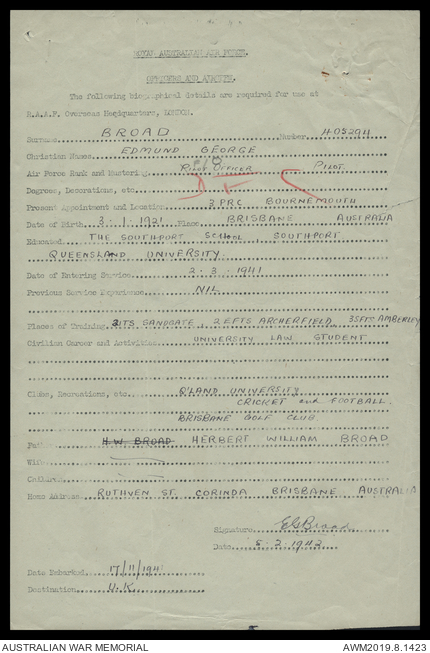 ROYAL AUSTRALIAN AIR FORCE.
OFFICERS AND AIRMEN.
The following biographical details are required for use at
R.A.A.F. Overseas Headquarters, LONDON.
Surname BROAD Number 405294
Christian Names EDMUND GEORGE
Air Force Rank and Mustering PILOT OFFICER PILOT
Degrees, Decorations, etc
Present Appointment and Location 3 PRC BOURNEMOUTH
Date of Birth 3.1.1921 Place BRISBANE AUSTRALIA
Educated THE SOUTHPORT SCHOOL, SOUTHPORT
QUEENSLAND UNIVERSITY.
Date of Entering Service 2.3.1941
Previous Service Experience NIL
Places of Training 3ITS SANDGATE, 2EFTS ARCHERFIELD, 3SFTS AMBERLEY
Civilian Career and Activities UNIVERSITY LAW STUDENT
Clubs, Recreations, etc. Q'LAND UNIVERSITY
CRICKET and FOOTBALL.
BRISBANE GOLF CLUB.
Father H.W. BROAD HERBERT WILLIAM BROAD
Wife
Children
Home Address RUTHVEN ST. CORINDA BRISBANE AUSTRALIA
Signature EGBroad
Date 5.2.1942
Date Embarked 17/11/1941
Destination U.K.
AUSTRALIAN WAR MEMORIAL
AWM2019.8.1423